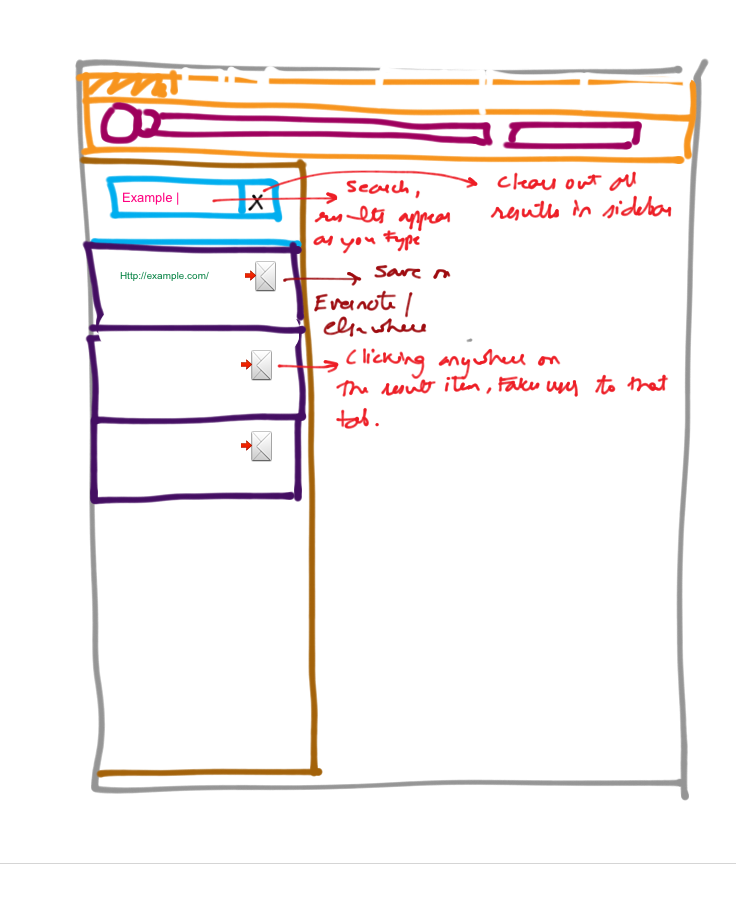 Example |
X
Search,
results appear
as you type
Clears out all
results in sidebar
Http://example.com/
Save on
Evernote /
elsewhere
Clicking anywhere on
the result item, takes user to that
tab.